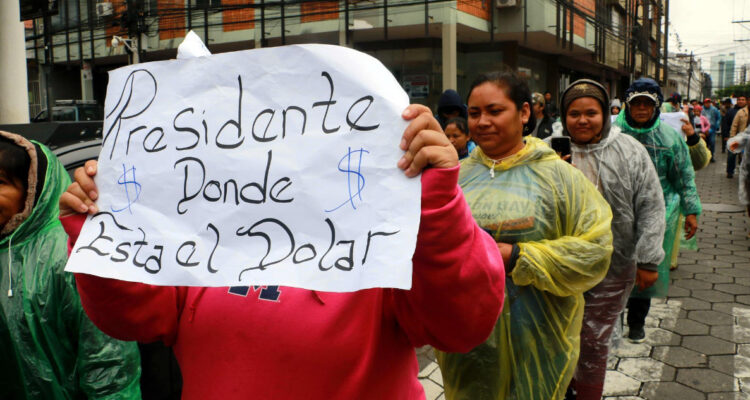 Presidente
$ Donde $
Esta el Dolar
M